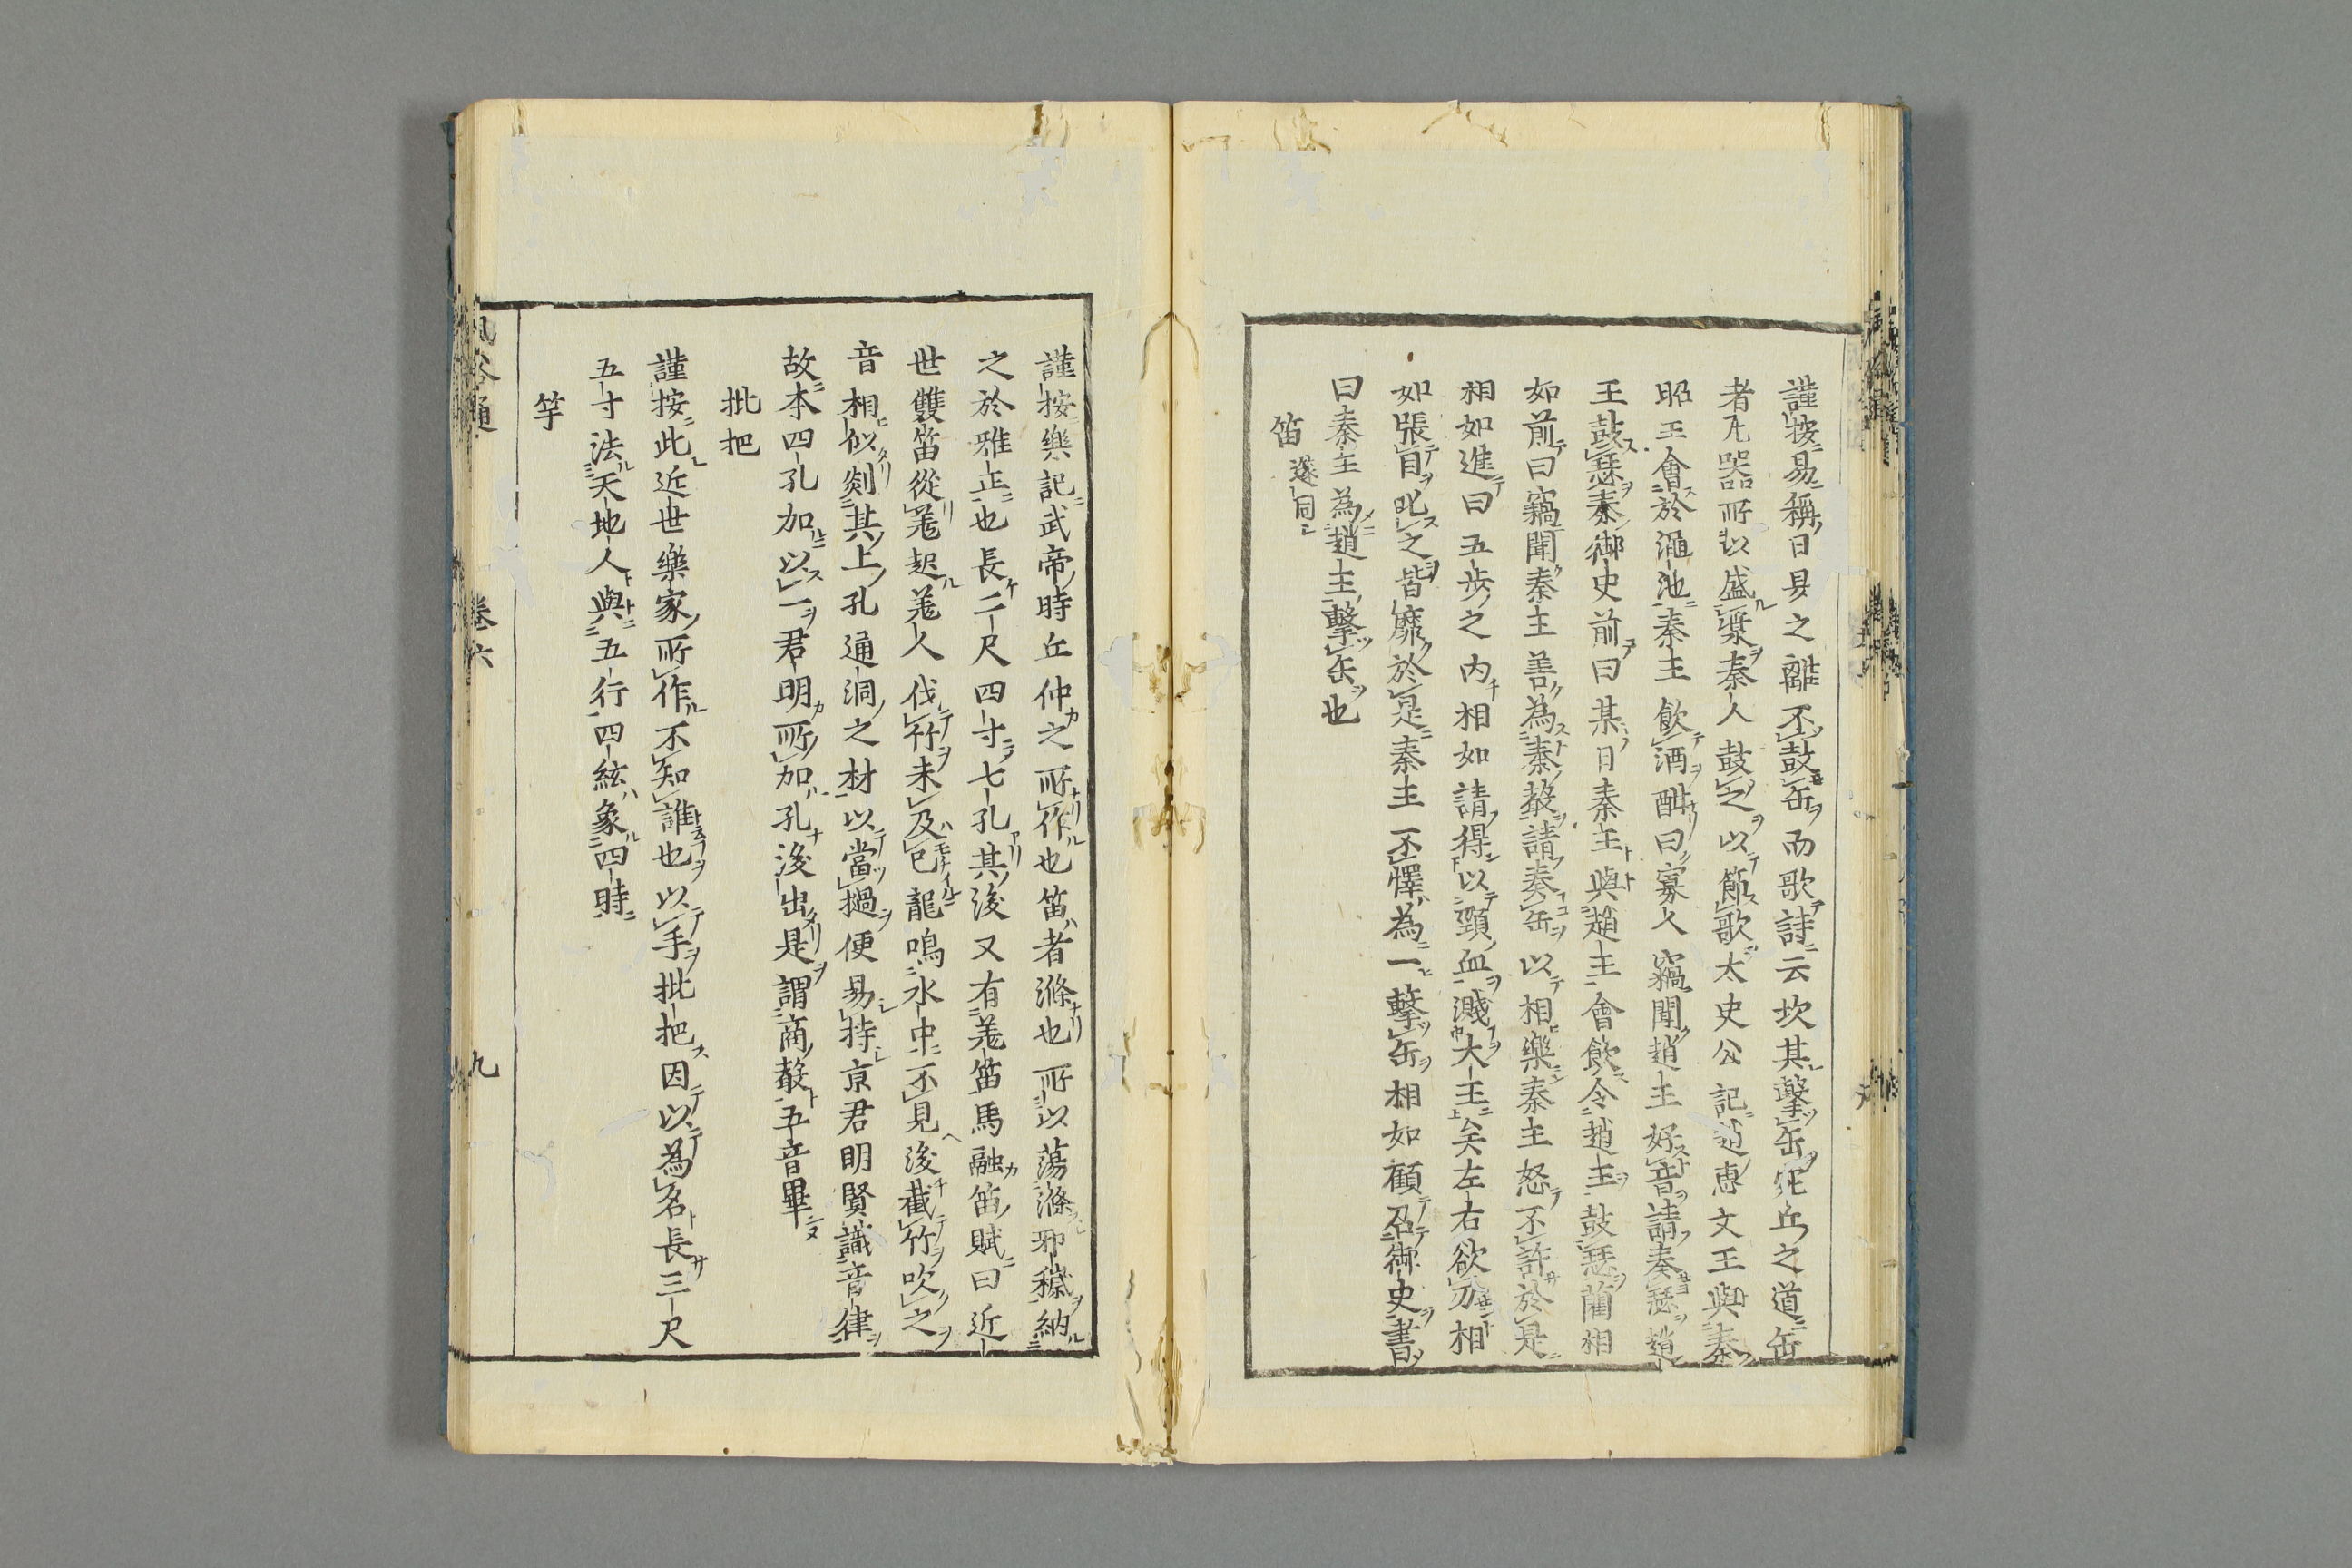 謹按易稱日昃之離不鼓缶而歌詩云坎其擊缶宛丘之道缶
者瓦器所以盛漿秦人鼓之以節歌太史公記趙惠文王與秦
昭王會於澠池秦王飲酒酣曰寡人竊聞趙王好音請奏瑟趙
王鼓瑟秦御史前曰某日秦王與趙王會飲令趙王鼓瑟藺相
如前曰竊聞秦王善為秦聲請奏缶以相樂秦王怒不許於是
相如進曰五步之内相如請得以頸血濺大王矣左右欲刃相
如張目叱之皆靡於是秦王不懌為一擊缶相如顧召御史書
曰秦王為趙王擊缶也
笛 篴同
謹按樂記武帝時丘仲之所作也笛者滌也所以蕩滌邪穢納
之於雅正也長二尺四寸七孔其後又有羗笛馬融笛賦曰近
世雙笛從羗起羗人伐竹未及已龍鳴水中不見後截竹吹之
音相似剡其上孔通洞之材以當撾便易持京君明賢識音律
故本四孔加以一君明所加孔後出是謂商聲五音畢
批把
謹按此近世樂家所作不知誰也以手批把因以為名長三尺
五寸法天地人與五行四絃象四時
竽
風俗通
卷六
九